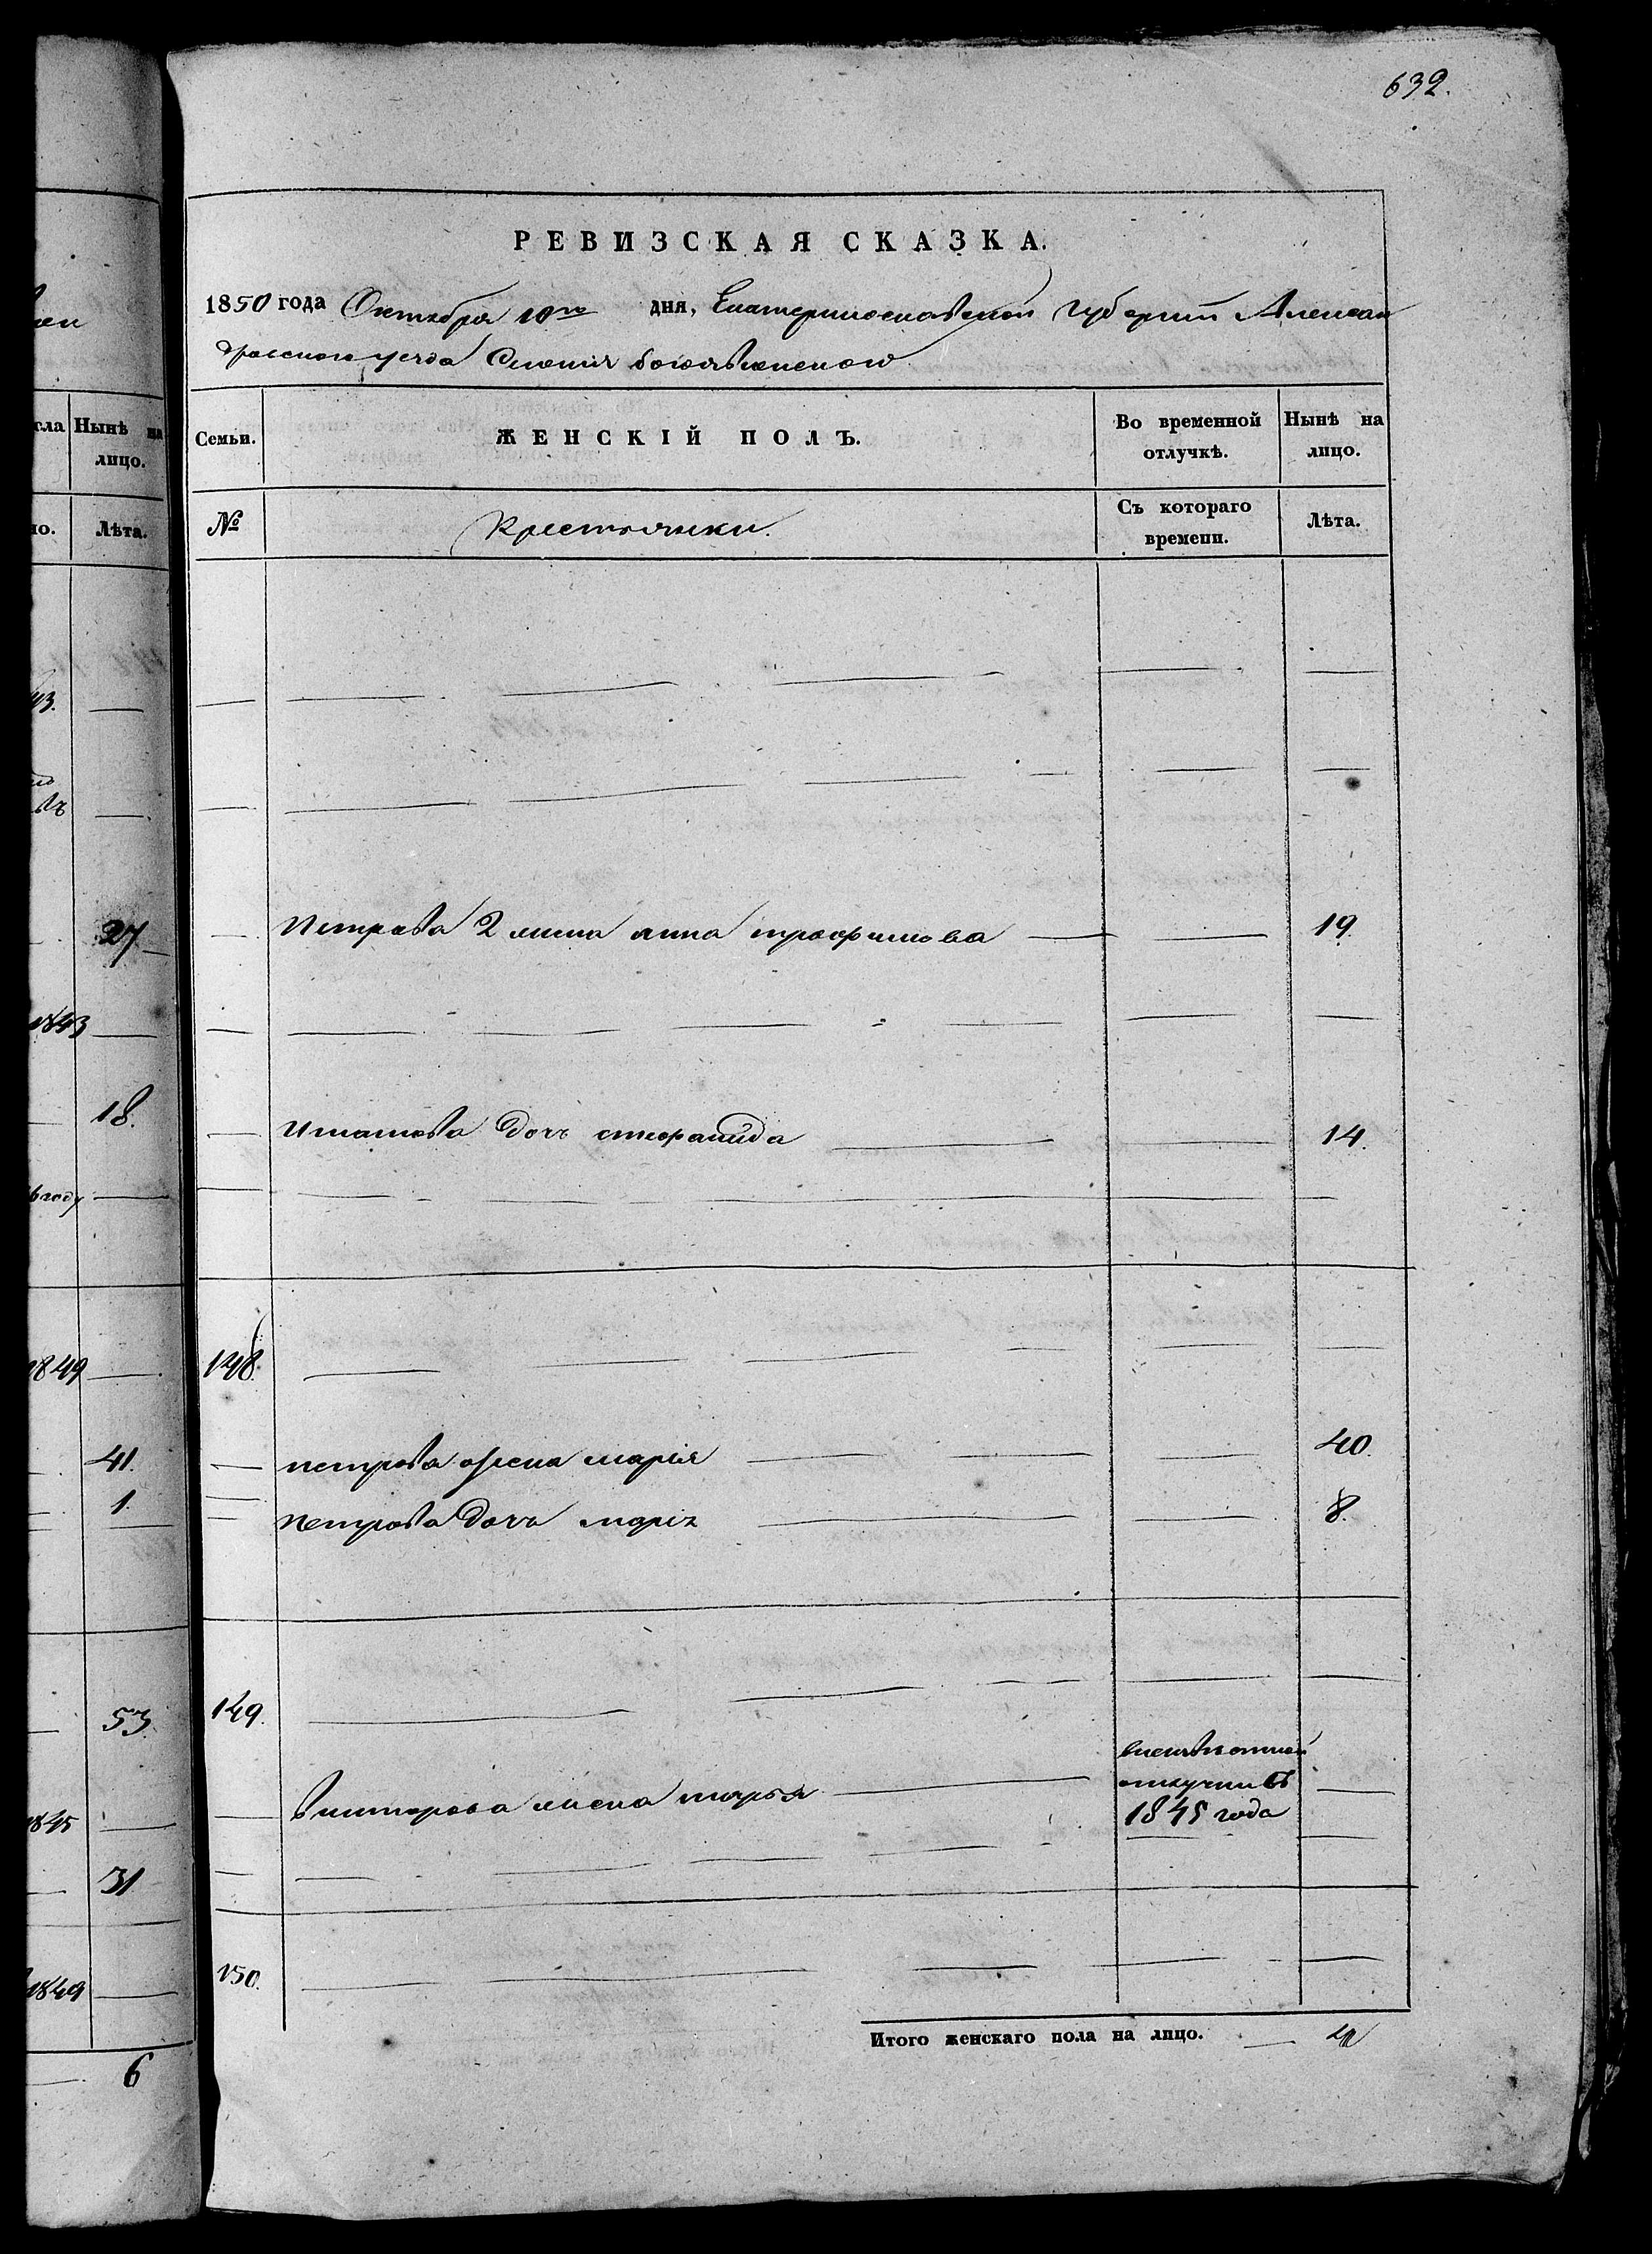 632.
РЕВИЗСКАЯ СКАЗКА.
1850 года Октября 10го дня, Екатеринославской губернии Алексан
дровского уезда
сла
Нынѣ на лицо.
Семьи.
ЖЕНСКІЙ ПОЛЪ.
Во временной отлучкѣ.
Нынѣ на лицо.
но.
Лѣта.
№
Крестьянки.
Съ котораго времени.
Лѣта.
27
Петрова 2 жена анна трофимова 19.
1843
18.
Игнатова дочь 14.
6 году
1849
148.
41.
петрова жена марія 40.
1.
Петрова дочь марія 8.
53.
149.
1845
Викторова жена марья
отлучки съ
1845 года
31
1849
150.
Итого женскаго пола на лицо. 4
6